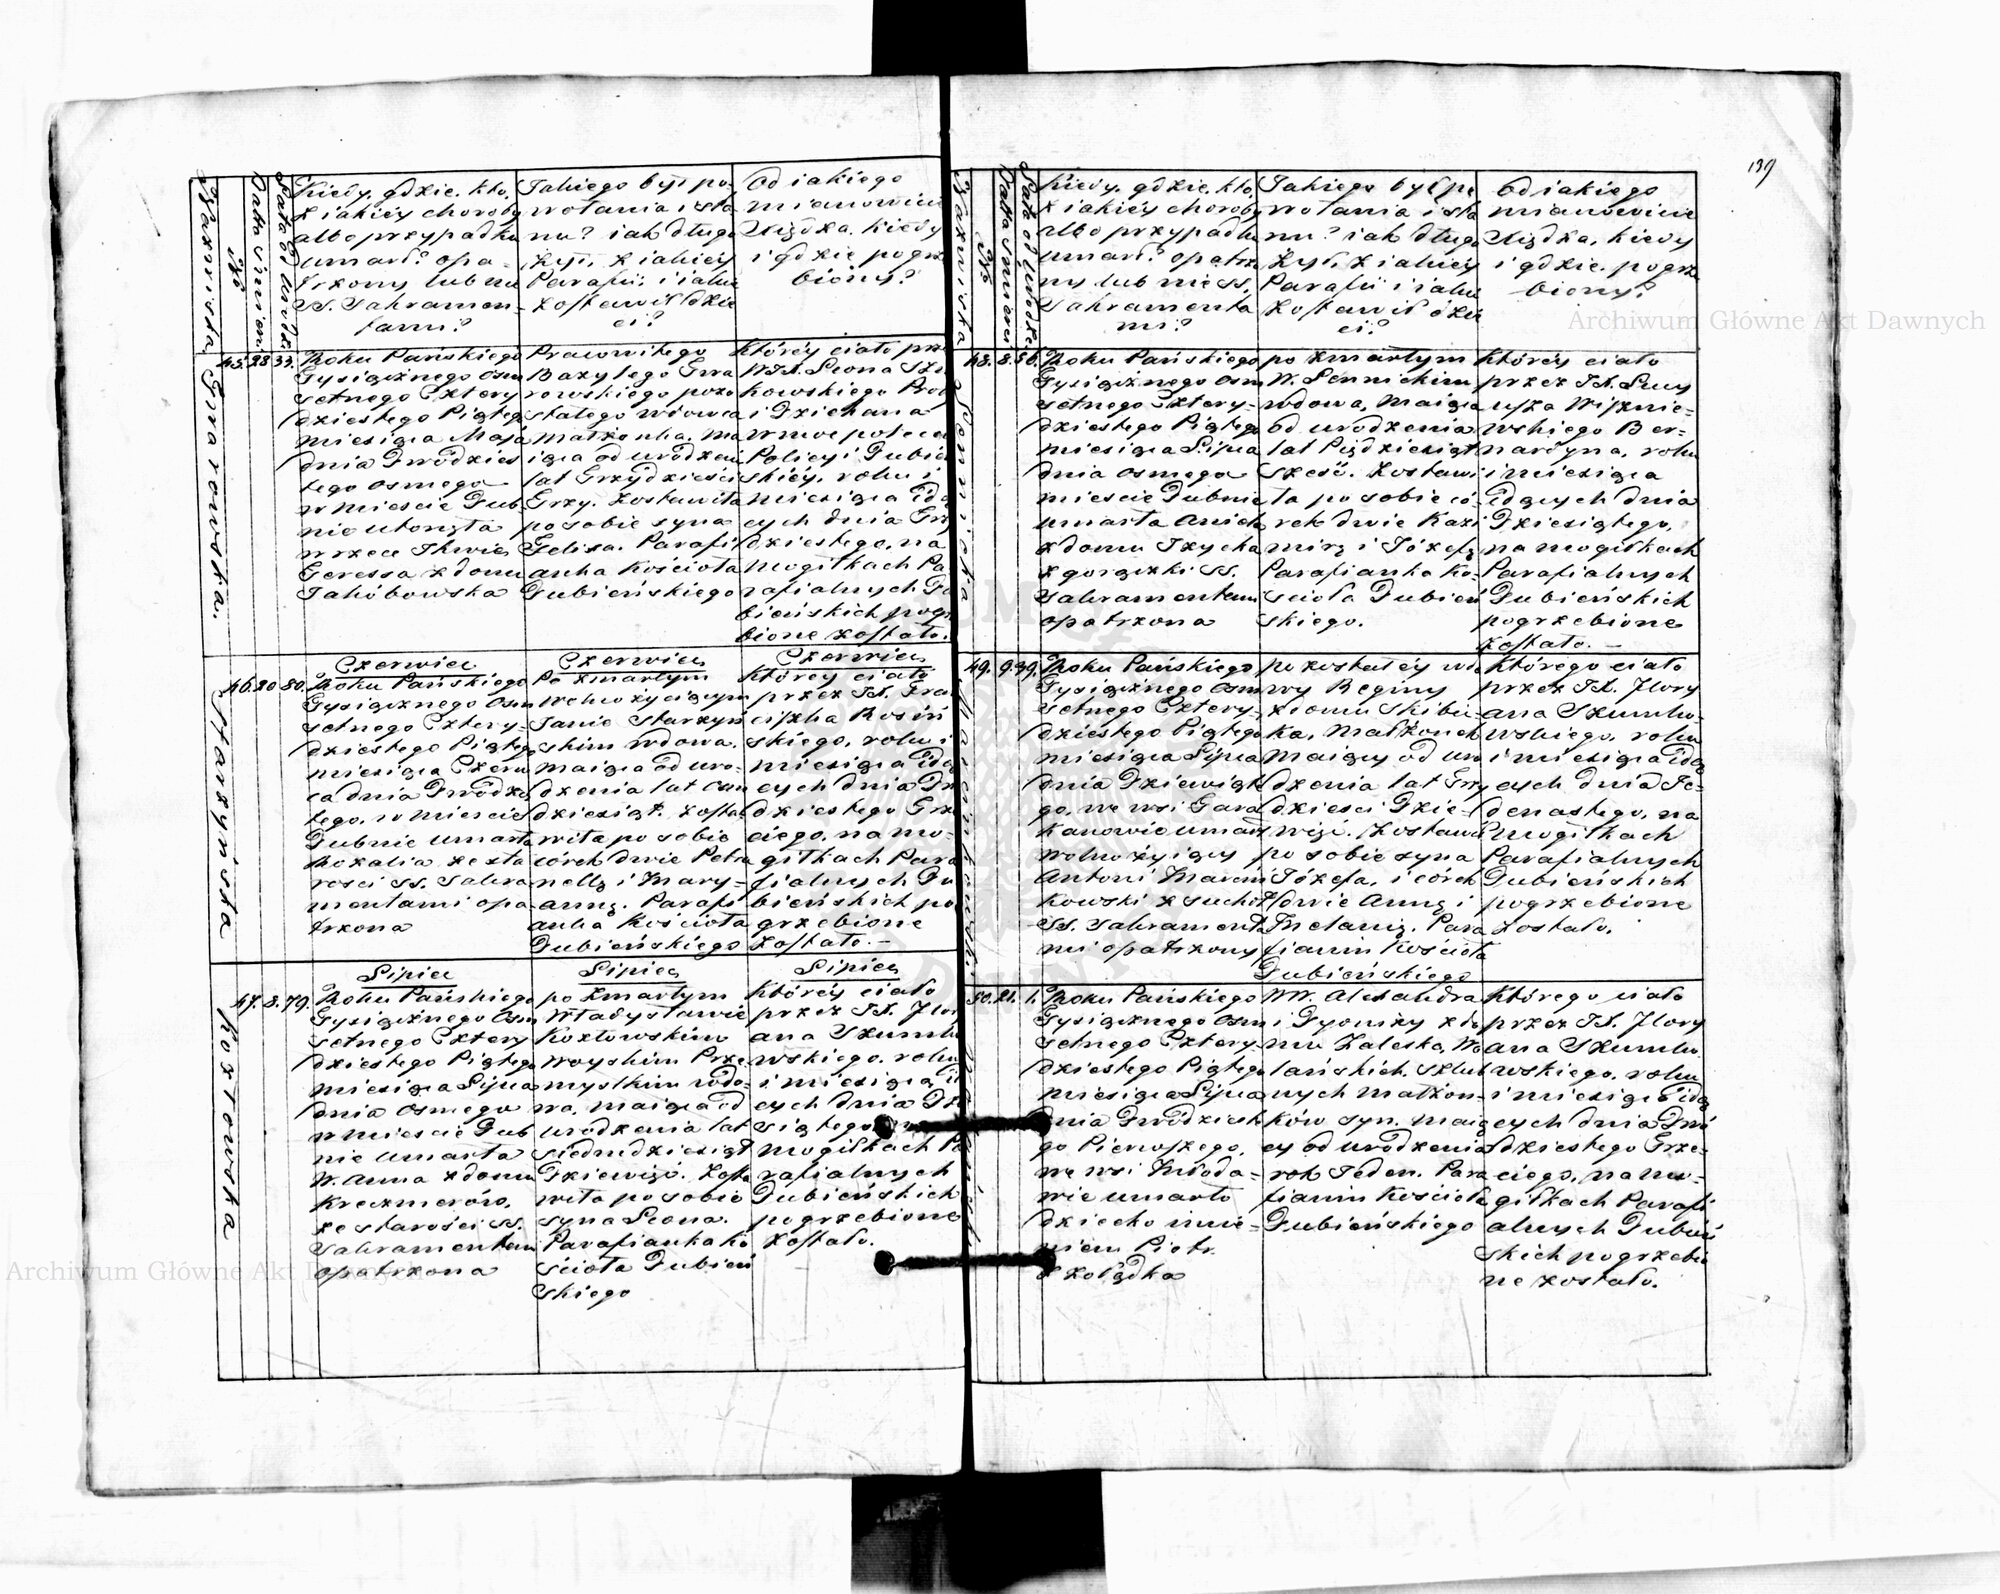 139
Nazwiska
№
Datta śmierci
Kiedy, gdzie, kto,
z iakiéy choroby
albo przypadku
umarł? opa-
trzony lub nie
SS. Sakramen-
tami?
Jakiego był po-
wołania i sta
nu? iak długo
żył, z iakiéy
Parafii, i iakie
zostawił dzie
ci?
Od iakiego
mianowicie
Xiędza, kiedy
i gdzie pogrze
biony?
Gwarowska.
45. 28 33.
Roku Pańskiego
Tysiącznego Osm
setnego Cztery
dziestego Piątego
miesiąca Maja
dnia Dwódzies
tego Osmego
w mieście Dub
nie utonęła
w rzece Ikwie
Teressa z domu
Jakóbowska
Pracowitego
Bazylego Gwa
rowskiego pozo
stałego wdowca
małżonka, ma
iąca od urodzeni
lat Trzydzieści
Trzy. Zostawiła
po sobie syna
Felixa. Parafi
anka Kościoła
Dubieńskiego
Któréy ciało prze
W. JX. Leona
kowskiego
i Dziekana
w moc
Policyi Dubie
skiéy, roku i
miesiąca idą
cych dnia Trzy
dziestego, na
mogiłkach Pa
rafialnych Du
bieńskich pogrze
bione zostało.
Starzyńska
46. 20 80.
Czerwiec
Roku Pańskiego
Tysiącznego Osm
setnego Cztery-
dziestego Piątego
miesiąca Czerw
ca dnia Dwódzies
tego, w mieście
Dubnie umarła
Rozalia ze sta
rości SS. Sakra
mentami opa
trzona
Czerwiec
Po zmarłym
wolno żyiącym
Janie Starzyń
skim wdowa,
maiąca od uro-
dzenia lat Osm
dziesiąt. Zosta
wiła po sobie
córek dwie Petro
nellę i Mary-
annę. Parafi
anka Kościoła
Dubieńskiego
Czerwiec
Któréy ciało
przez JX. Fran
ciszka Rosiń
skiego, roku i
miesiąca idą
cych dnia Dwó
dziestego Trze
ciego, na mo-
giłkach Para
fialnych Du
bieńskich po
grzebione
zostało.-
Kozłowska
47. 8. 79.
Lipiec
Roku Pańskiego
Tysiącznego Osm
setnego Cztery
dziestego Piątego
miesiąca Lipca
dnia Osmego
w mieście Dub
nie umarła
W. Anna z domu
Kreczmerów,
ze starości SS.
Sakramentami
opatrzona
Lipiec
po zmarłym
Władysławie
Kozłowskim
Woyskim Prze
myslkim wdo-
wa, maiąca od
urodzenia lat
siedmdziesiąt
Dziewięć. Zosta
wiła po sobie
syna Leona.
Parafianka Ko
ścioła Dubień
skiego
Lipiec
Któréy ciało
przez JX. Flory
ana Szumko
wskiego, roku
i miesiąca id
cych dnia Dzie
siątego, na
mogiłkach Pa
rafialnych
Dubieńskich
pogrzebione
zostało.
Nazwiska
№
Datta śmierci
Kiedy, gdzie, kto,
z iakiéy choroby
albo przypadku
umarł? opatrzo
ny lub nie SS.
Sakramenta
mi?
Jakiego był po
wołania i sta
nu? iak długo
żył, z iakiéy
Parafii i iakie
zostawił dzie
ci?
Od iakiego
mianowicie
Xiędza, kiedy
i gdzie pogrze
biony?
48. 8. 56.
Roku Pańskiego
Tysiącznego Osm
setnego Cztery-
dziestego Piątego
miesiąca Lipca
dnia Osmego
mieście Dubnie
umarła
z domu
z gorączki SS.
Sakramentami
opatrzona
po zmarłym
W. Sennickim
wdowa, maiąca
od urodzenia
lat Pięćdziesiąt
sześć. Zostawi
ła po sobie có-
rek dwie Kazi
mirę i Józefę
Parafianka Ko-
ścioła Dubień
skiego.
Któréy ciało
przez JX. Lucy
usza Wiśznie-
wskiego Ber-
nardyna, roku
i miesiąca
idących dnia
Dziesiątego,
na mogiłkach
Parafialnych
Dubieńskich
pogrzebione
zostało.-
49. 9. 39.
Roku Pańskiego
Tysiącznego Osm
setnego Cztery-
dziestego Piątego
miesiąca Lipca
dnia Dziewiąte
go, we wsi Tara
kanowie umarł
wolno żyiący
Antoni Marcin
kowski z suchot
SS. Sakramenta
mi opatrzony
pozostałéy wdo
wy Reginy
z domu Skibic
ka, Małżonek
maiący od uro
dzenia lat Trzy
dzieści Dzie-
więć. Zostawił
po sobie syna
Józefa, i córek
dwie Annę i
Melanię. Para
fianin Kościoła
Dubieńskiego
Którego ciało
przez JX. Flory
ana Szumko-
wskiego, roku
i miesiąca idą
cych dnia Je-
denastego, na
mogiłkach
Parafialnych
Dubieńskich
pogrzebione
zostało.
50. 21. 1.
Roku Pańskiego
Tysiącznego Osm
setnego Cztery-
dziestego Piątego
miesiąca Lipca
dnia Dwódzieste
go Pierwszego,
we wsi Młoda-
wie umarło
dziecko imie-
niem Piotr
z żołądka
WW. Alexandra
i Dyonizy z do
mu Zaleska,
lańskich, szlub
nych małżon-
ków syn, maią
cy od urodzenia
rok Jeden. Para
fianin Kościoła
Dubieńskiego
Którego ciało
przez JX. Flory
ana Szumko
wskiego, roku
i miesiąca idą
cych dnia Dwó
dziestego Trze-
ciego, na mo-
giłkach Parafi
alnych Dubień
skich pogrzebio
ne zostało.
Archiwum Główne Akt Dawnych
Archiwum Główne Akt Dawnych